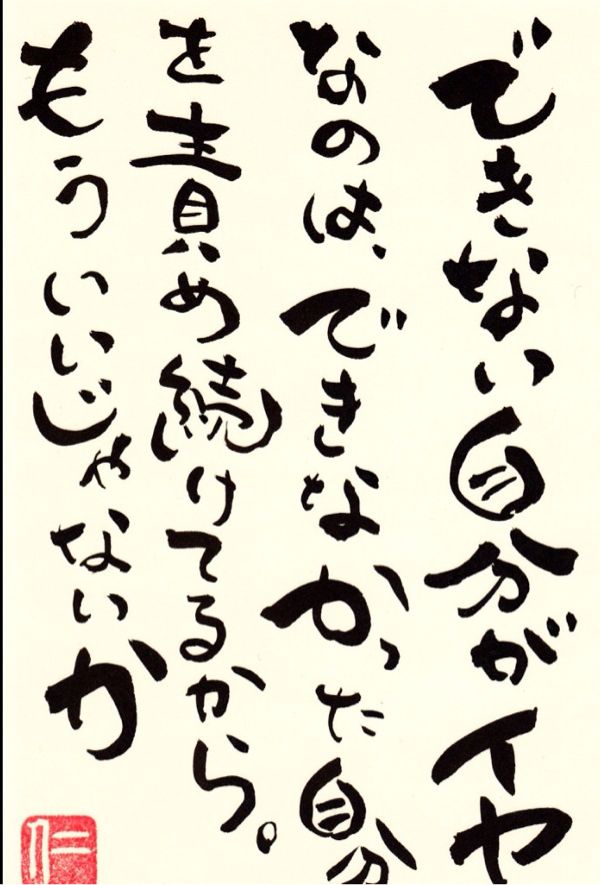 できない自分がイヤ
なのは、できなかった自分
を責め続けてるから。
もういいじゃないか
仁